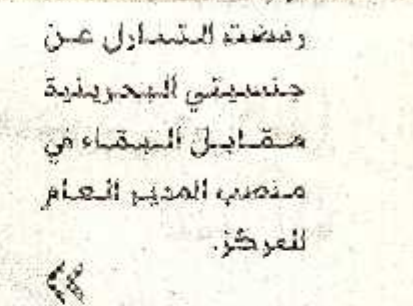 رفضت التنازل عن
جنسيتي البحرينية
مقابل البقاء في
منصب المدير العام
للمركز.
»